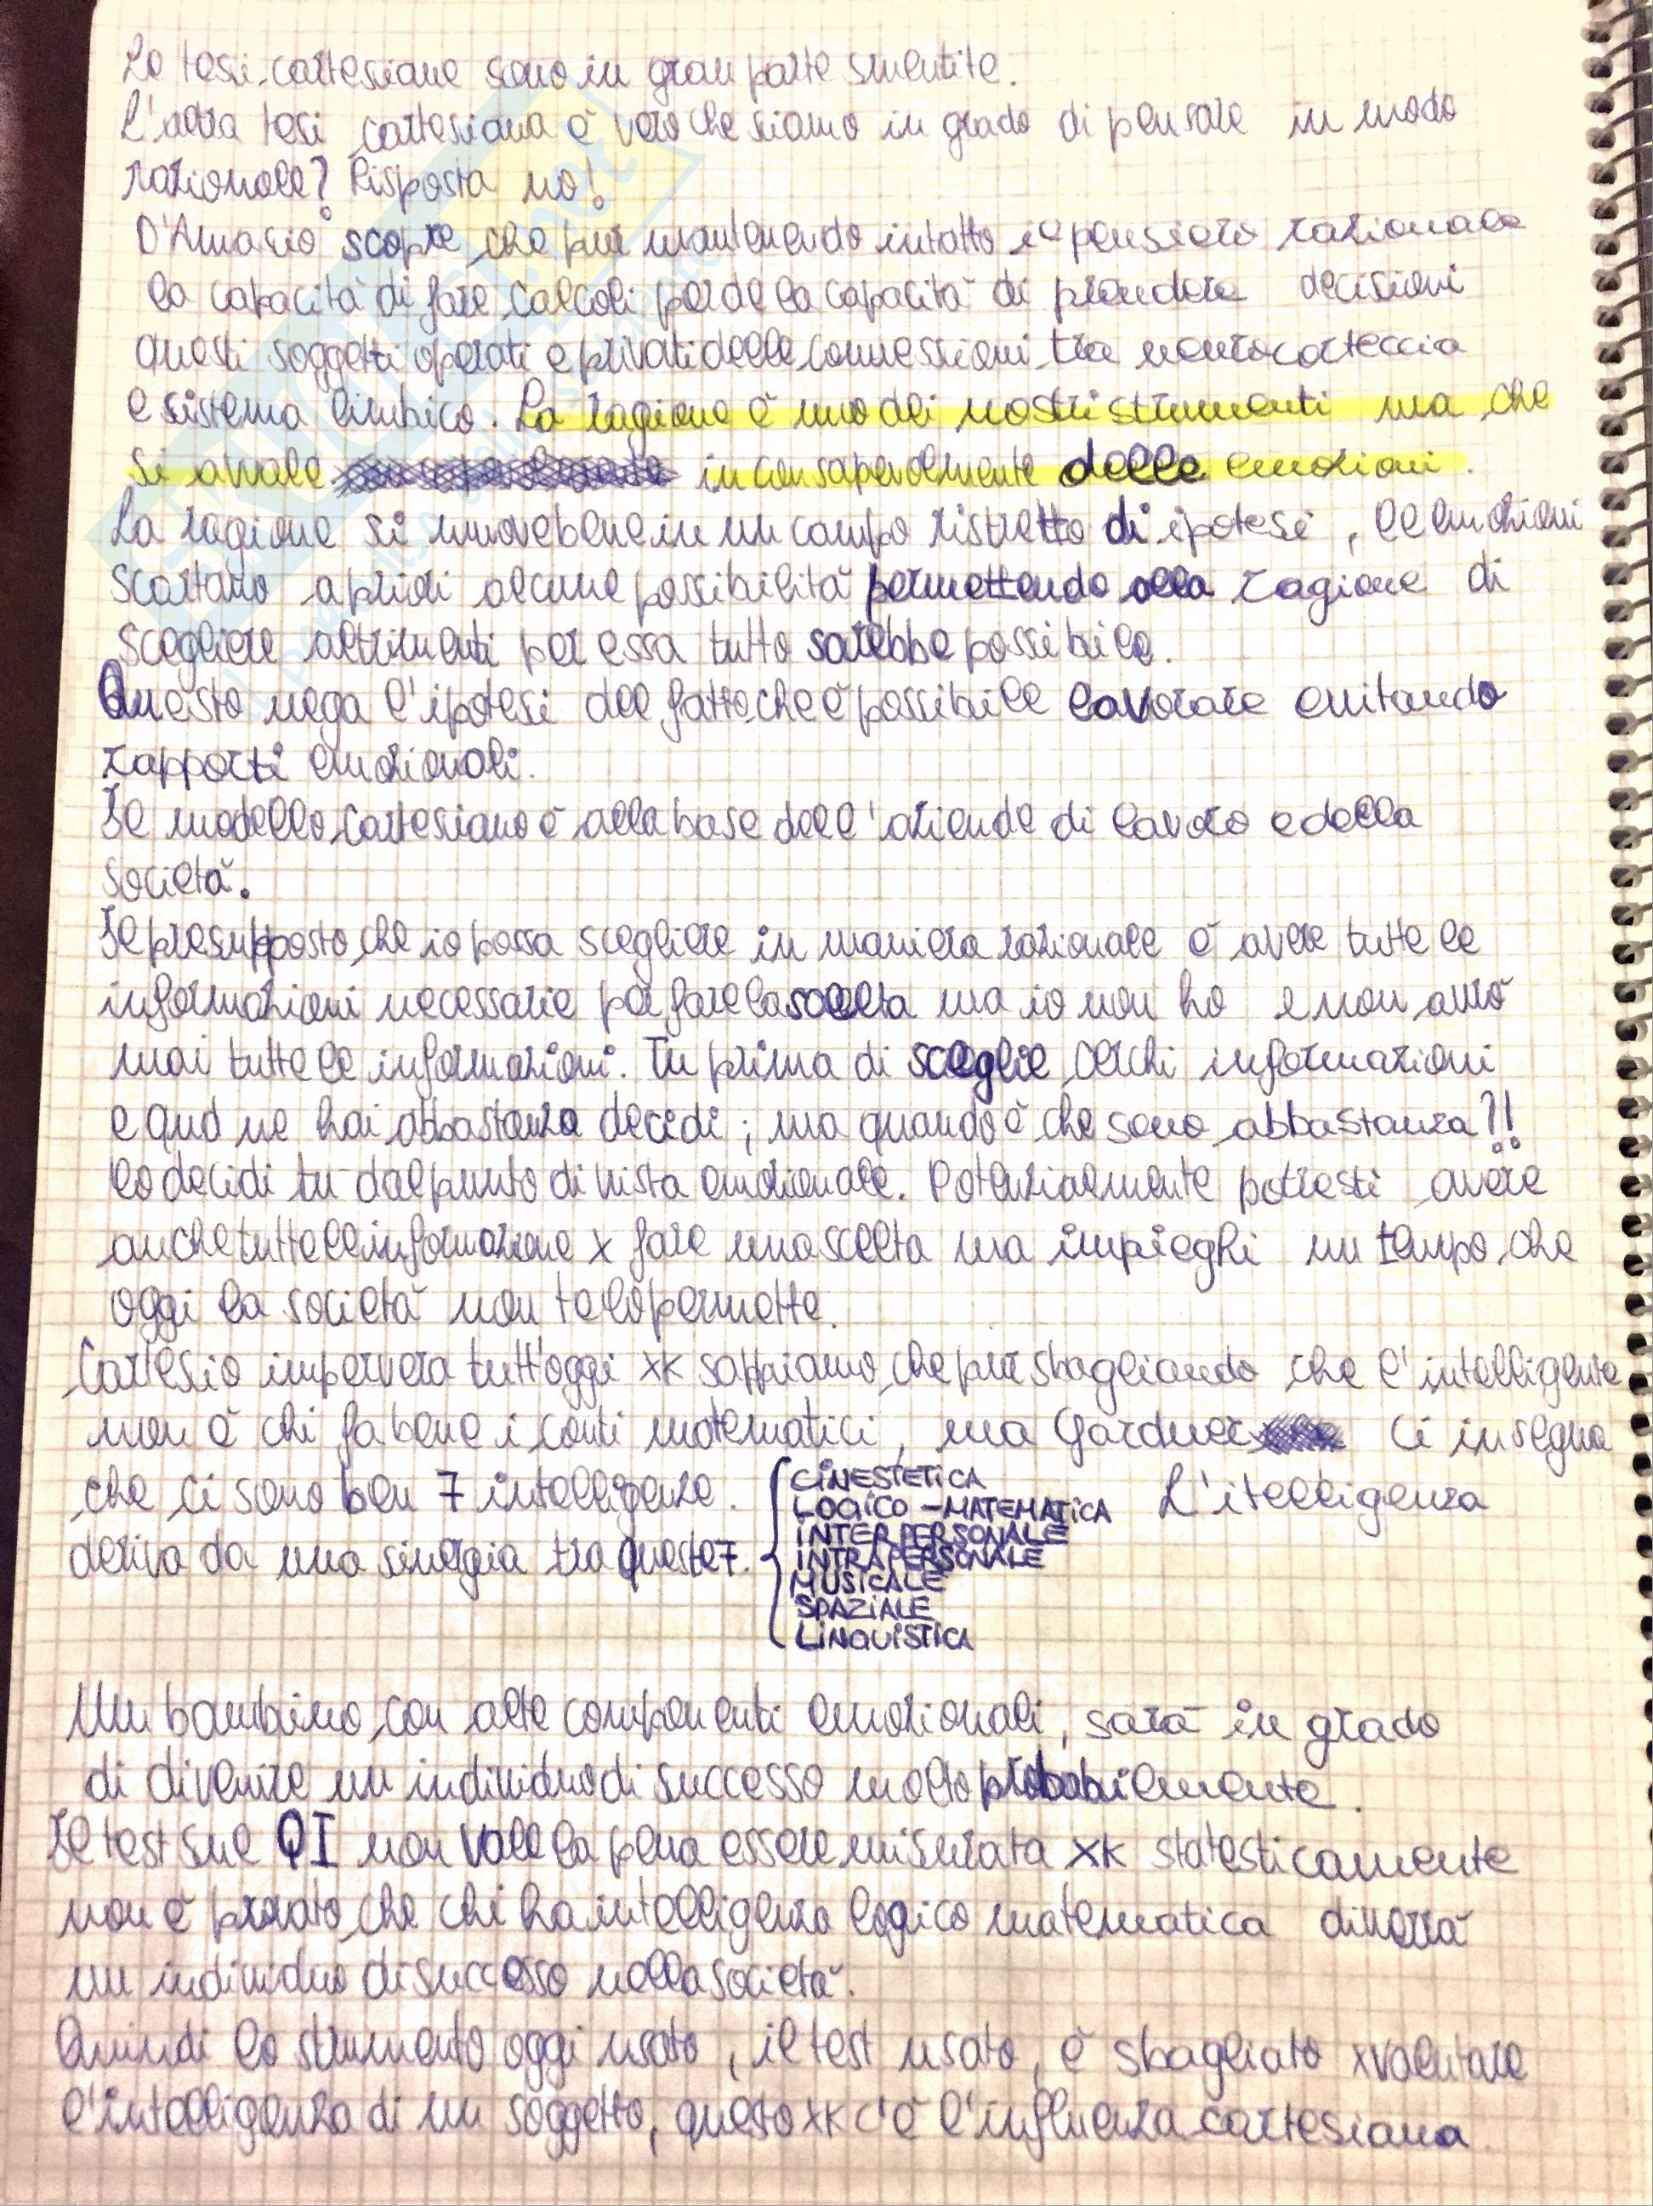 Le tesi cartesiane sono in gran parte smentite.
L'altra tesi cartesiana è vero che siamo in grado di pensare in modo
razionale? Risposta no!
D'Amasio scopre che pur mantenendo intatto il pensiero razionale
la capacità di fare calcoli perde la capacità di prendere decisioni
questi soggetti operati e privati delle connessioni tra neurocorteccia
e sistema limbico. La ragione è uno dei nostri strumenti ma che
si avvale inconsapevolmente delle emozioni.
La ragione si muove bene in un campo ristretto di ipotesi, le emozioni
scartano a priori alcune possibilità permettendo alla ragione di
scegliere altrimenti per essa tutto sarebbe possibile.
Questo nega l'ipotesi del fatto che è possibile lavorare evitando
rapporti emozionali.
Il modello cartesiano è alla base dell'aziende di lavoro e della
società.
Il presupposto che io possa scegliere in maniera razionale è avere tutte le
informazioni necessarie per fare la scelta ma io non ho e non avrò
mai tutte le informazioni. Tu prima di sceglie cerchi informazioni
e qnd ne hai abbastanza decidi; ma quando è che sono abbastanza?!
lo decidi tu dal punto di vista emozionale. Potenzialmente potresti avere
anche tutte le informazione x fare una scelta ma impieghi un tempo che
oggi la società non te lo permette.
Cartesio imperversa tutt'oggi xk sappiamo che pur sbagliando che l'intelligente
non è chi fa bene i conti matematici, ma Gardner ci insegna
che ci sono ben 7 intelligenze. L'itelligenza
deriva da una sinergia tra queste 7.
CINESTETICA
LOGICO-MATEMATICA
INTERPERSONALE
INTRAPERSONALE
MUSICALE
SPAZIALE
LINGUISTICA
Un bambino con alte componenti emozionali, sarà in grado
di divenire un individuo di successo molto probabilmente.
Il test sul QI non vale la pena essere misurata xk statesticamente
non è provato che chi ha intelligenza logico matematica diverrà
un individuo di successo nella società.
Quindi lo strumento oggi usato, il test usato, è sbagliato x valutare
l'intelligenza di un soggetto, questo xk c'è l'influenza cartesiana